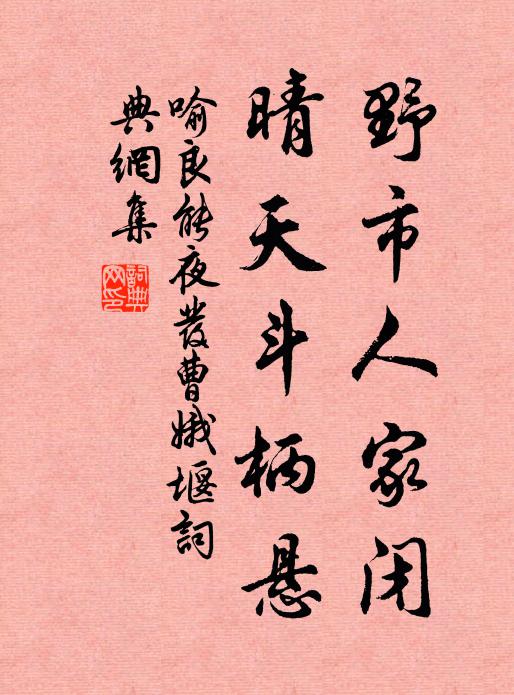 野市人家闭
晴天斗柄悬
喻良能夜發曹娥堰詞
典網集
詞典网印